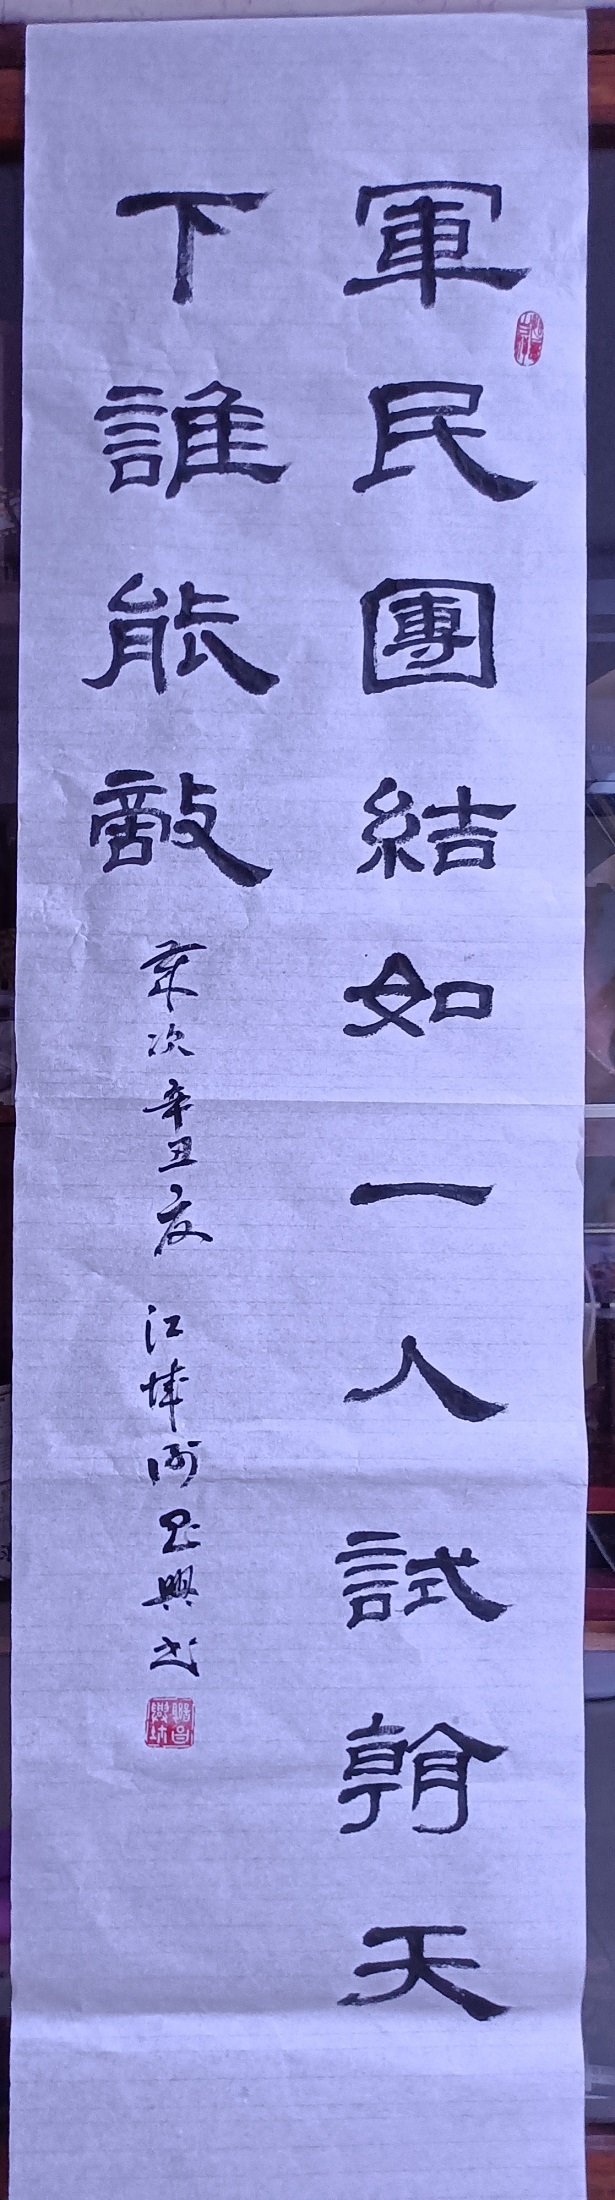 軍民團結如一人試看天
下誰能敵
歲次辛丑夏 江 興書